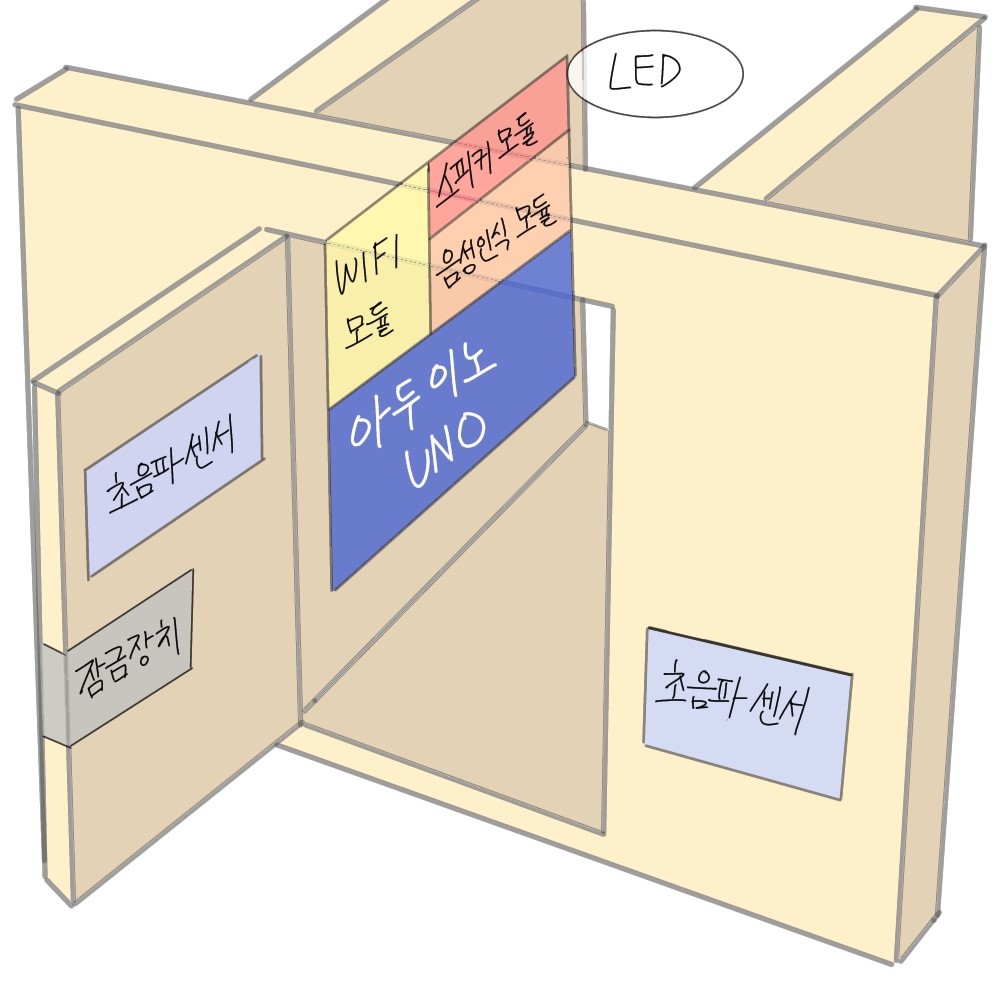 LED
스피커 모듈
WIFI
모듈
음성인식 모듈
아두이노
UNO
초음파센서
잠금장치
초음파 센서